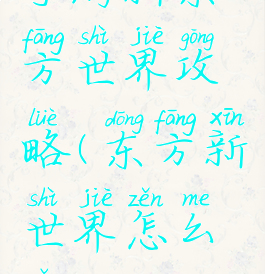 fāng shì jiè gōng
方世界攻
lüè dōng fāng xīn
略(东方新
shì jiè zěn me
世界怎么